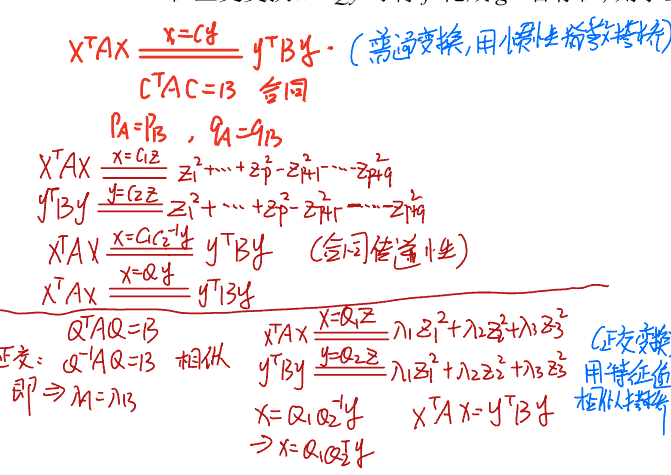 X^TAX ==(x=Cy)== y^TBy. (普通变换,用惯性指数搭桥)
C^TAC=B 合同
P_A=P_B , q_A=q_B
X^TAX ==(x=C₁z)== z₁²+⋯+z_p²-z_{p+1}²-⋯-z_{p+q}²
y^TBy ==(y=C₂z)== z₁²+⋯+z_p²-z_{p+1}²-⋯-z_{p+q}²
X^TAX ==(x=C₁C₂⁻¹y)== y^TBy (合同传递性)
X^TAX ==(x=Qy)== y^TBy
正交: Q^TAQ=B
Q⁻¹AQ=B 相似
即 ⇒ λ_A=λ_B
X^TAX ==(x=Q₁z)== λ₁z₁²+λ₂z₂²+λ₃z₃²
y^TBy ==(y=Q₂z)== λ₁z₁²+λ₂z₂²+λ₃z₃²
x=Q₁Q₂⁻¹y X^TAX=y^TBy
⇒ x=Q₁Q₂^Ty
(正交变换
用特征值
相似搭桥